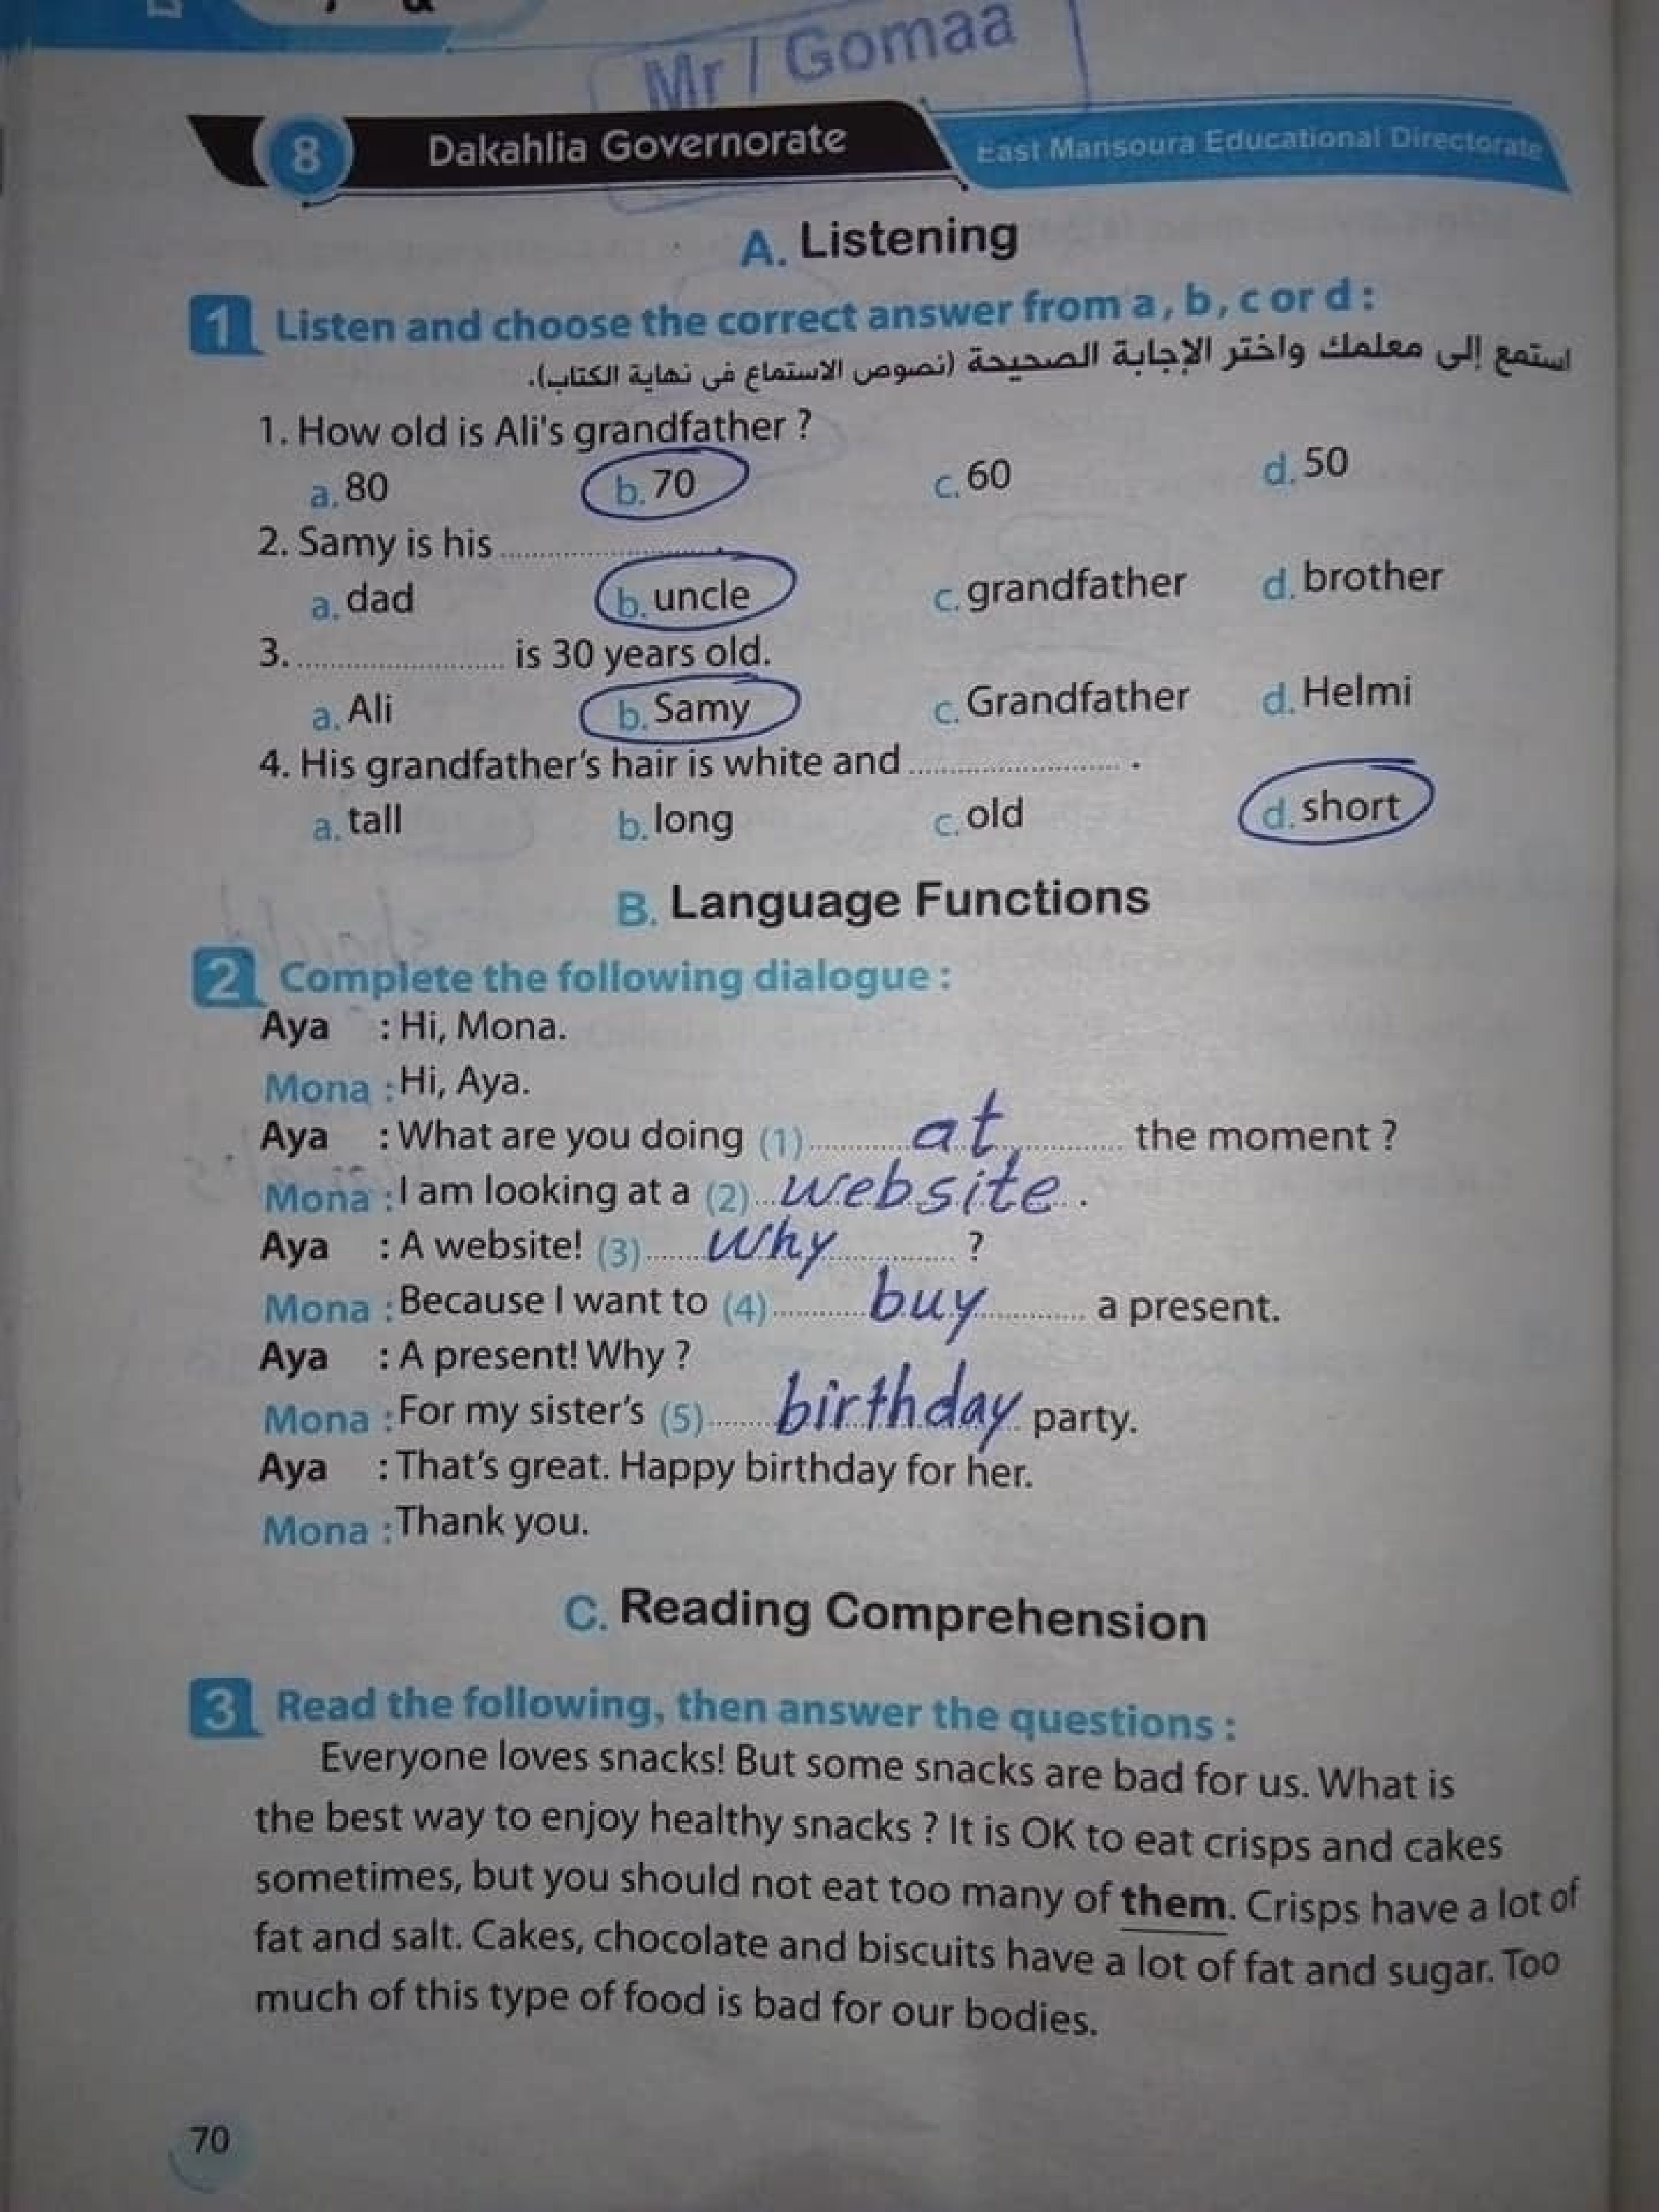 Mr / Gomaa
8 Dakahlia Governorate East Mansoura Educational Directorate
A. Listening
1 Listen and choose the correct answer from a , b , c or d :
استمع إلى معلمك واختر الإجابة الصحيحة (نصوص الاستماع فى نهاية الكتاب).
1. How old is Ali's grandfather ?
a. 80 b. 70 c. 60 d. 50
2. Samy is his ........................ .
a. dad b. uncle c. grandfather d. brother
3. ........................ is 30 years old.
a. Ali b. Samy c. Grandfather d. Helmi
4. His grandfather's hair is white and ........................ .
a. tall b. long c. old d. short
B. Language Functions
2 Complete the following dialogue :
Aya : Hi, Mona.
Mona : Hi, Aya.
Aya : What are you doing (1) at the moment ?
Mona : I am looking at a (2) website .
Aya : A website! (3) why ?
Mona : Because I want to (4) buy a present.
Aya : A present! Why ?
Mona : For my sister's (5) birthday party.
Aya : That's great. Happy birthday for her.
Mona : Thank you.
C. Reading Comprehension
3 Read the following, then answer the questions :
Everyone loves snacks! But some snacks are bad for us. What is
the best way to enjoy healthy snacks ? It is OK to eat crisps and cakes
sometimes, but you should not eat too many of them. Crisps have a lot of
fat and salt. Cakes, chocolate and biscuits have a lot of fat and sugar. Too
much of this type of food is bad for our bodies.
70